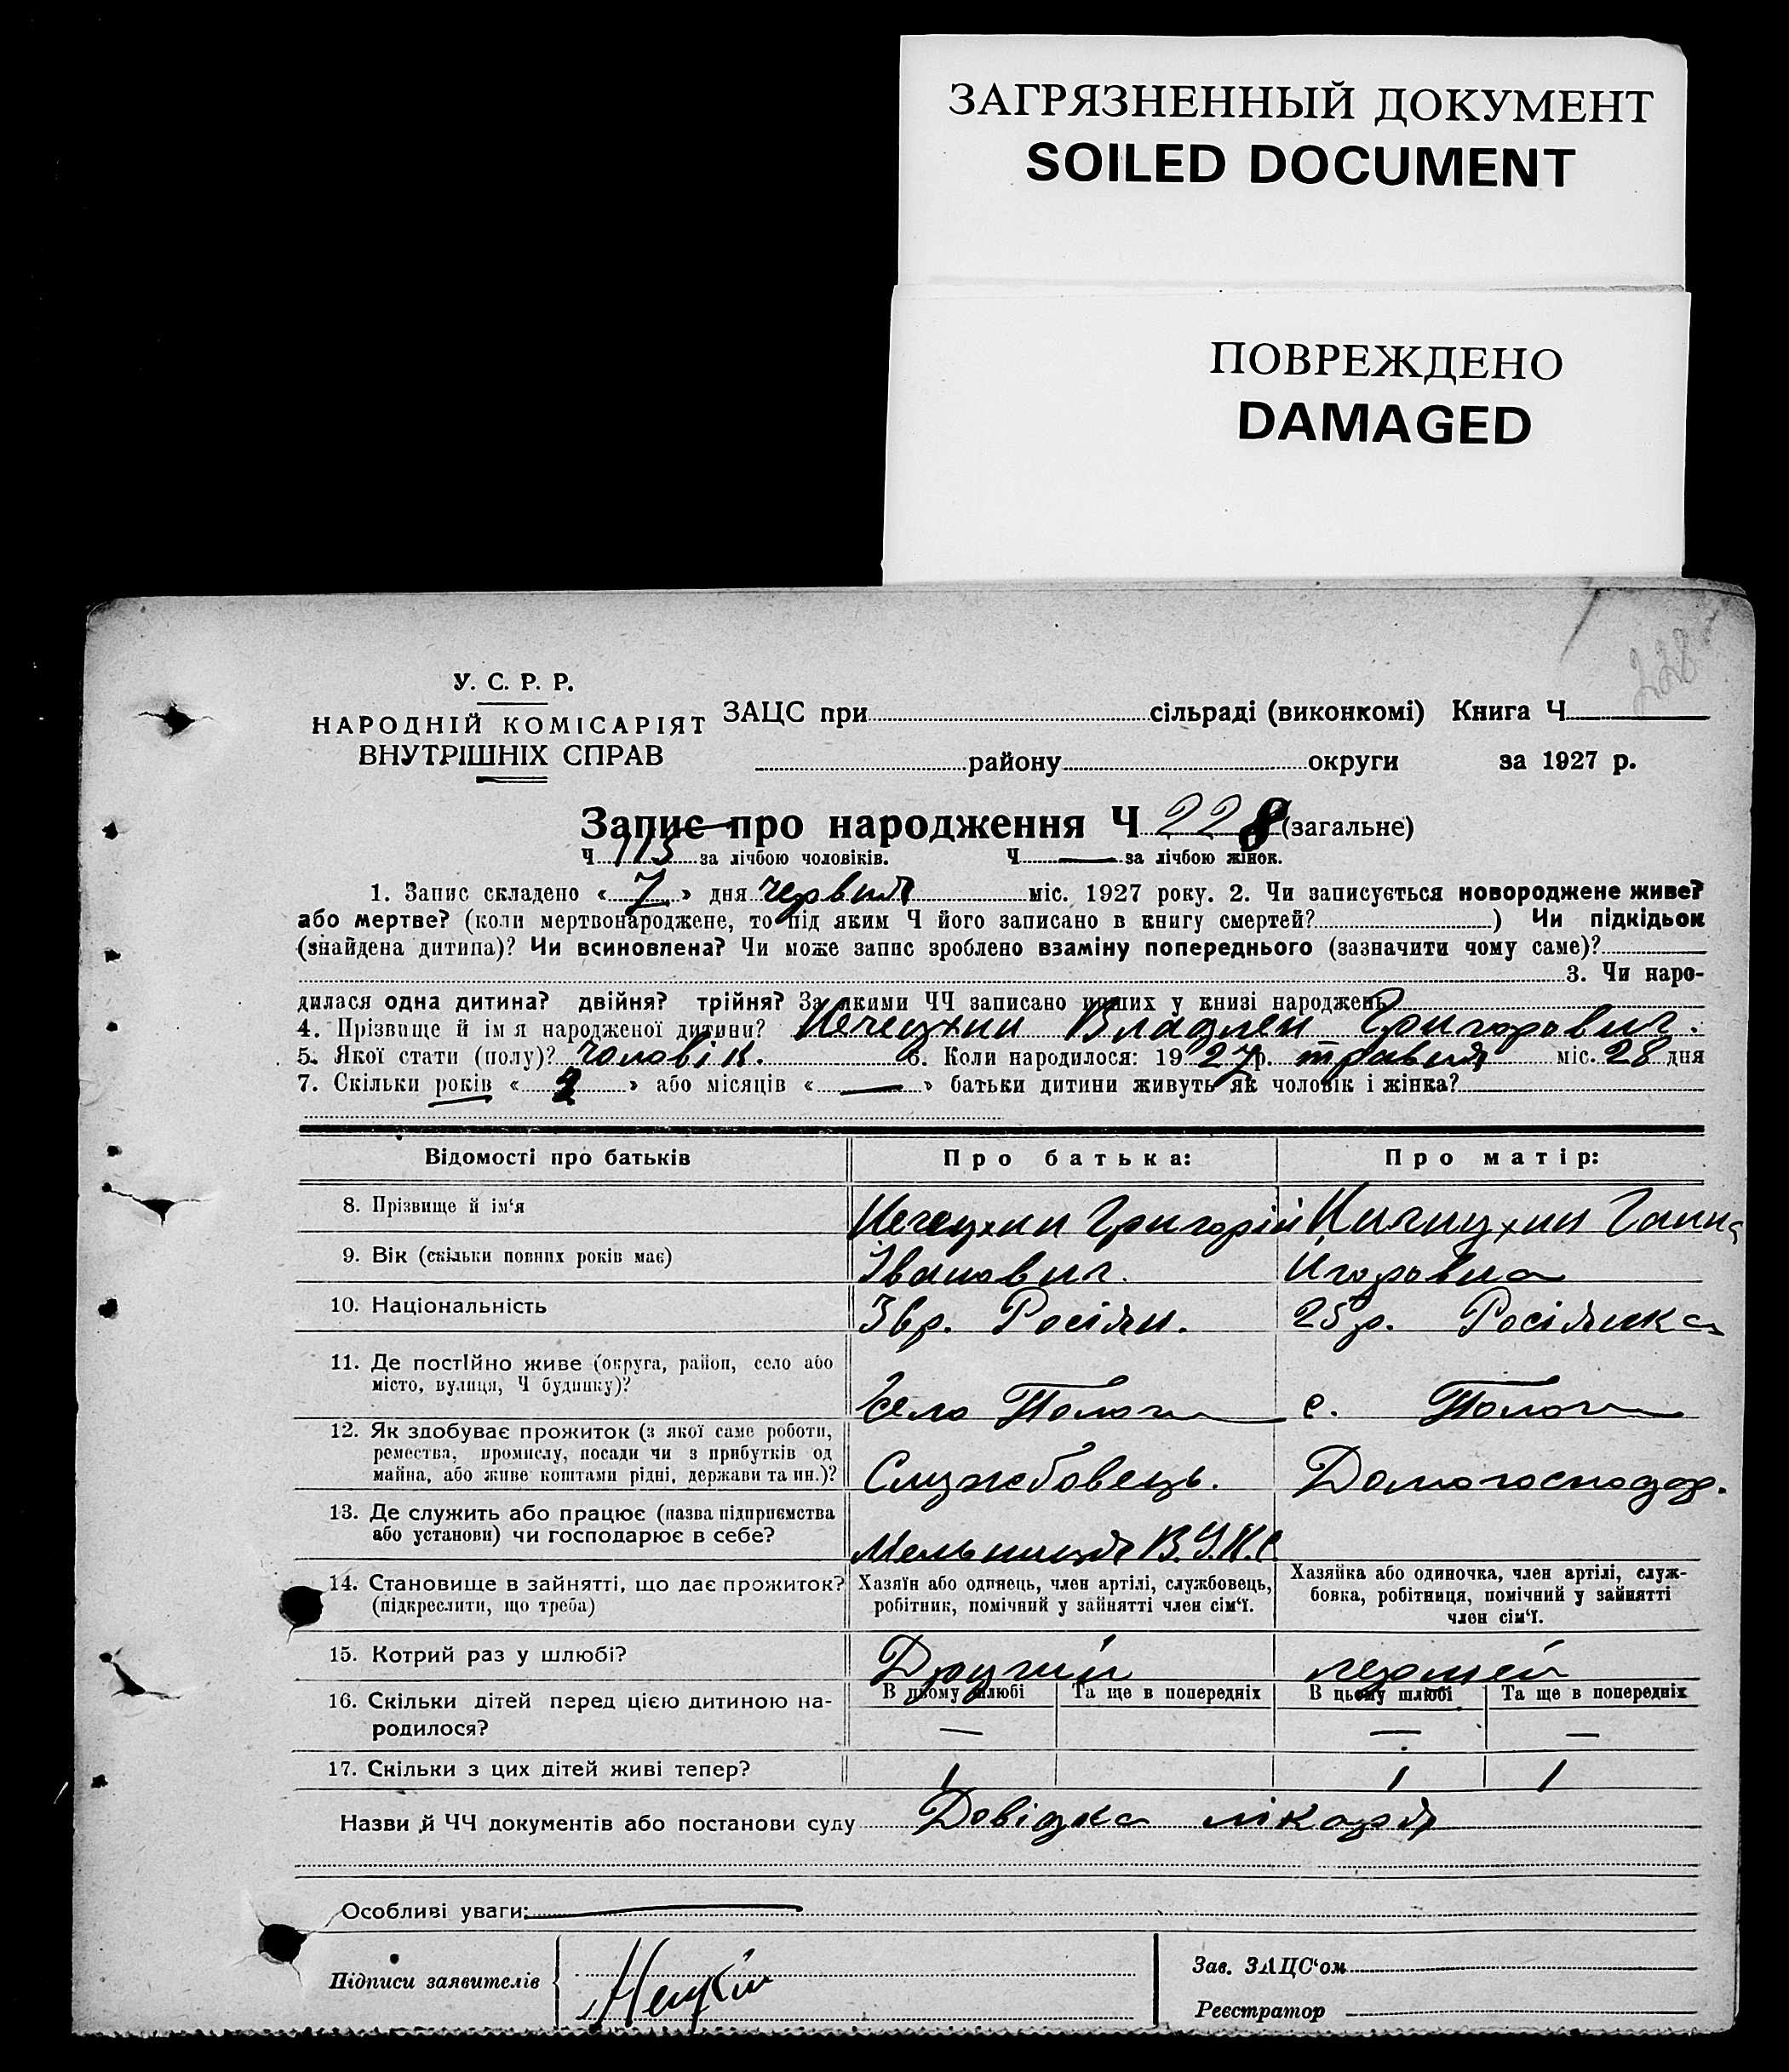 ЗАГРЯЗНЕННЫЙ ДОКУМЕНТ
SOILED DOCUMENT
ПОВРЕЖДЕНО
DAMAGED
228
У. С. Р. Р.
НАРОДНІЙ КОМІСАРІЯТ
ВНУТРІШНІХ СПРАВ
ЗАЦС при сільраді (виконкомі) Книга Ч
району округи за 1927 р.
Запис про народження Ч 228 (загальне)
Ч 113 за лічбою чоловіків. Ч — за лічбою жінок.
1. Запис складено « 7 » дня червня міс. 1927 року. 2. Чи записується новороджене живе?
або мертве? (коли мертвонароджене, то під яким Ч його записано в книгу смертей? ) Чи підкідьок
(знайдена дитина)? Чи всиновлена? Чи може запис зроблено взаміну попереднього (зазначити чому саме)?
3. Чи наро-
дилася одна дитина? двійня? трійня? За якими ЧЧ записано инших у книзі народжень
4. Прізвище й ім я народженої дитини? Владлен Григорович.
5. Якої стати (полу)? чоловік. 6. Коли народилося: 1927 р. травня міс. 28 дня
7. Скільки років « 2 » або місяців « — » батьки дитини живуть як чоловік і жінка?
Відомості про батьків Про батька: Про матір:
8. Прізвище й ім'я Григорій Ганна
9. Вік (скільки повних років має) Іванович. Игоровна
10. Національність 36р. Росіян. 25р. Росіянка
11. Де постійно живе (округа, район, село або
місто, вулиця, Ч будинку)? Село Пологи с. Пологи
12. Як здобуває прожиток (з якої саме роботи,
ремества, промислу, посади чи з прибутків од
майна, або живе коштами рідні, держави та ин.)? Службовець. Домогосподар.
13. Де служить або працює (назва підприємства
або установи) чи господарює в себе? Мельниця
14. Становище в зайнятті, що дає прожиток?
(підкреслити, що треба)
Хазяїн або одинець, член артілі, службовець,
робітник, помічний у зайнятті член сім'ї.
Хазяйка або одиночка, член артілі, служ-
бовка, робітниця, помічний у зайнятті
член сім'ї.
15. Котрий раз у шлюбі? Другий
В цьому шлюбі Та ще в попередніх В цьому шлюбі Та ще в попередніх
16. Скільки дітей перед цією дитиною на-
родилося? — — —
17. Скільки з цих дітей живі тепер? 1 1 1
Назви й ЧЧ документів або постанови суду Довідка лікаря
Особливі уваги:
Підписи заявителів
Зав. ЗАЦС'ом
Реєстратор